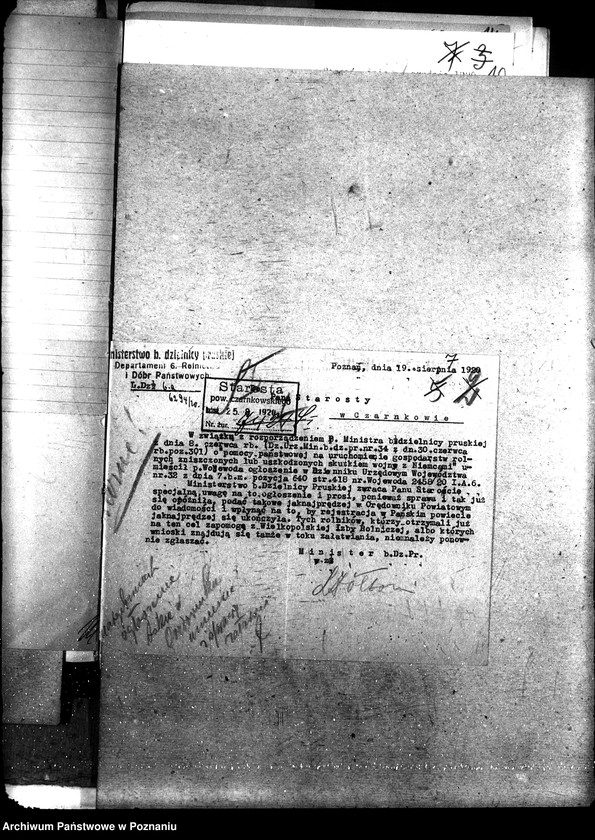 Ministerstwo b. dzielnicy pruskiej
Departament 6. Rolnictwa
i Dóbr Państwowych
L.Dz. 6.a
6294/20
Poznań, dnia 19. sierpnia 1920
Starosta
pow. czarnkowskiego
25. 8. 1920
Nr. żur.
Pana Starosty
w Czarnkowie
W związku z rozporządzeniem P. Ministra b.dzielnicy pruskiej
dnia 8. czerwca rb. (Dz.Urz.Min.b.dz.pr.nr.34 z dn.30.czerwca
rb.poz.301) o pomocy państwowej na uruchomienie gospodarstw rol-
nych zniszczonych lub uszkodzonych skutkiem wojny z Niemcami u-
mieścił p.Wojewoda ogłoszenie w Dzienniku Urzędowym Województwa
nr.32 z dnia 7.b.m. pozycja 640 str.418 nr.Wojewoda 2458/20 I.A.6.
Ministerstwo b.Dzielnicy Pruskiej zwraca Panu Staroście
specjalną uwagę na to ogłoszenie i prosi, ponieważ sprawa i tak już
się opóźniła, podać takowe jaknajprędzej w Orędowniku Powiatowym
do wiadomości i wpłynąć na to, by rejestracja w Pańskim powiecie
jaknajprędzej się ukończyła. Tych rolników, którzy otrzymali już
na ten cel zapomogę z Wielkopolskiej Izby Rolniczej, albo których
wnioski znajdują się tamże w toku załatwiania, nie należy ponow-
nie zgłaszać.
Minister b.Dz.Pr.
w.z.
Archiwum Państwowe w Poznaniu